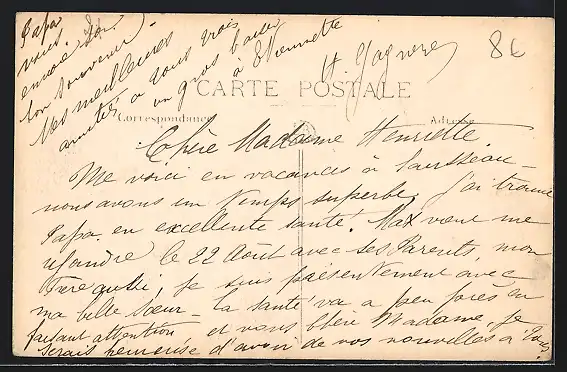 Papa
vous
envoie son
bon souvenir
Mes meilleures
amitiés à vous trois
un gros baiser
à Étiennette
H. Gagnere
86
CARTE POSTALE
Correspondance
Adresse
Chère Madame Henriette
Me voici en vacances à
nous avons un temps superbe, j'ai trouvé
Papa en excellente santé. Max vient me
rejoindre le 22 Août avec ses Parents, mon
frère aussi, je suis présentement avec
ma belle sœur - la santé va a peu près en
faisant attention et vous Chère Madame, je
serais heureuse d'avoir de vos nouvelles à tous.